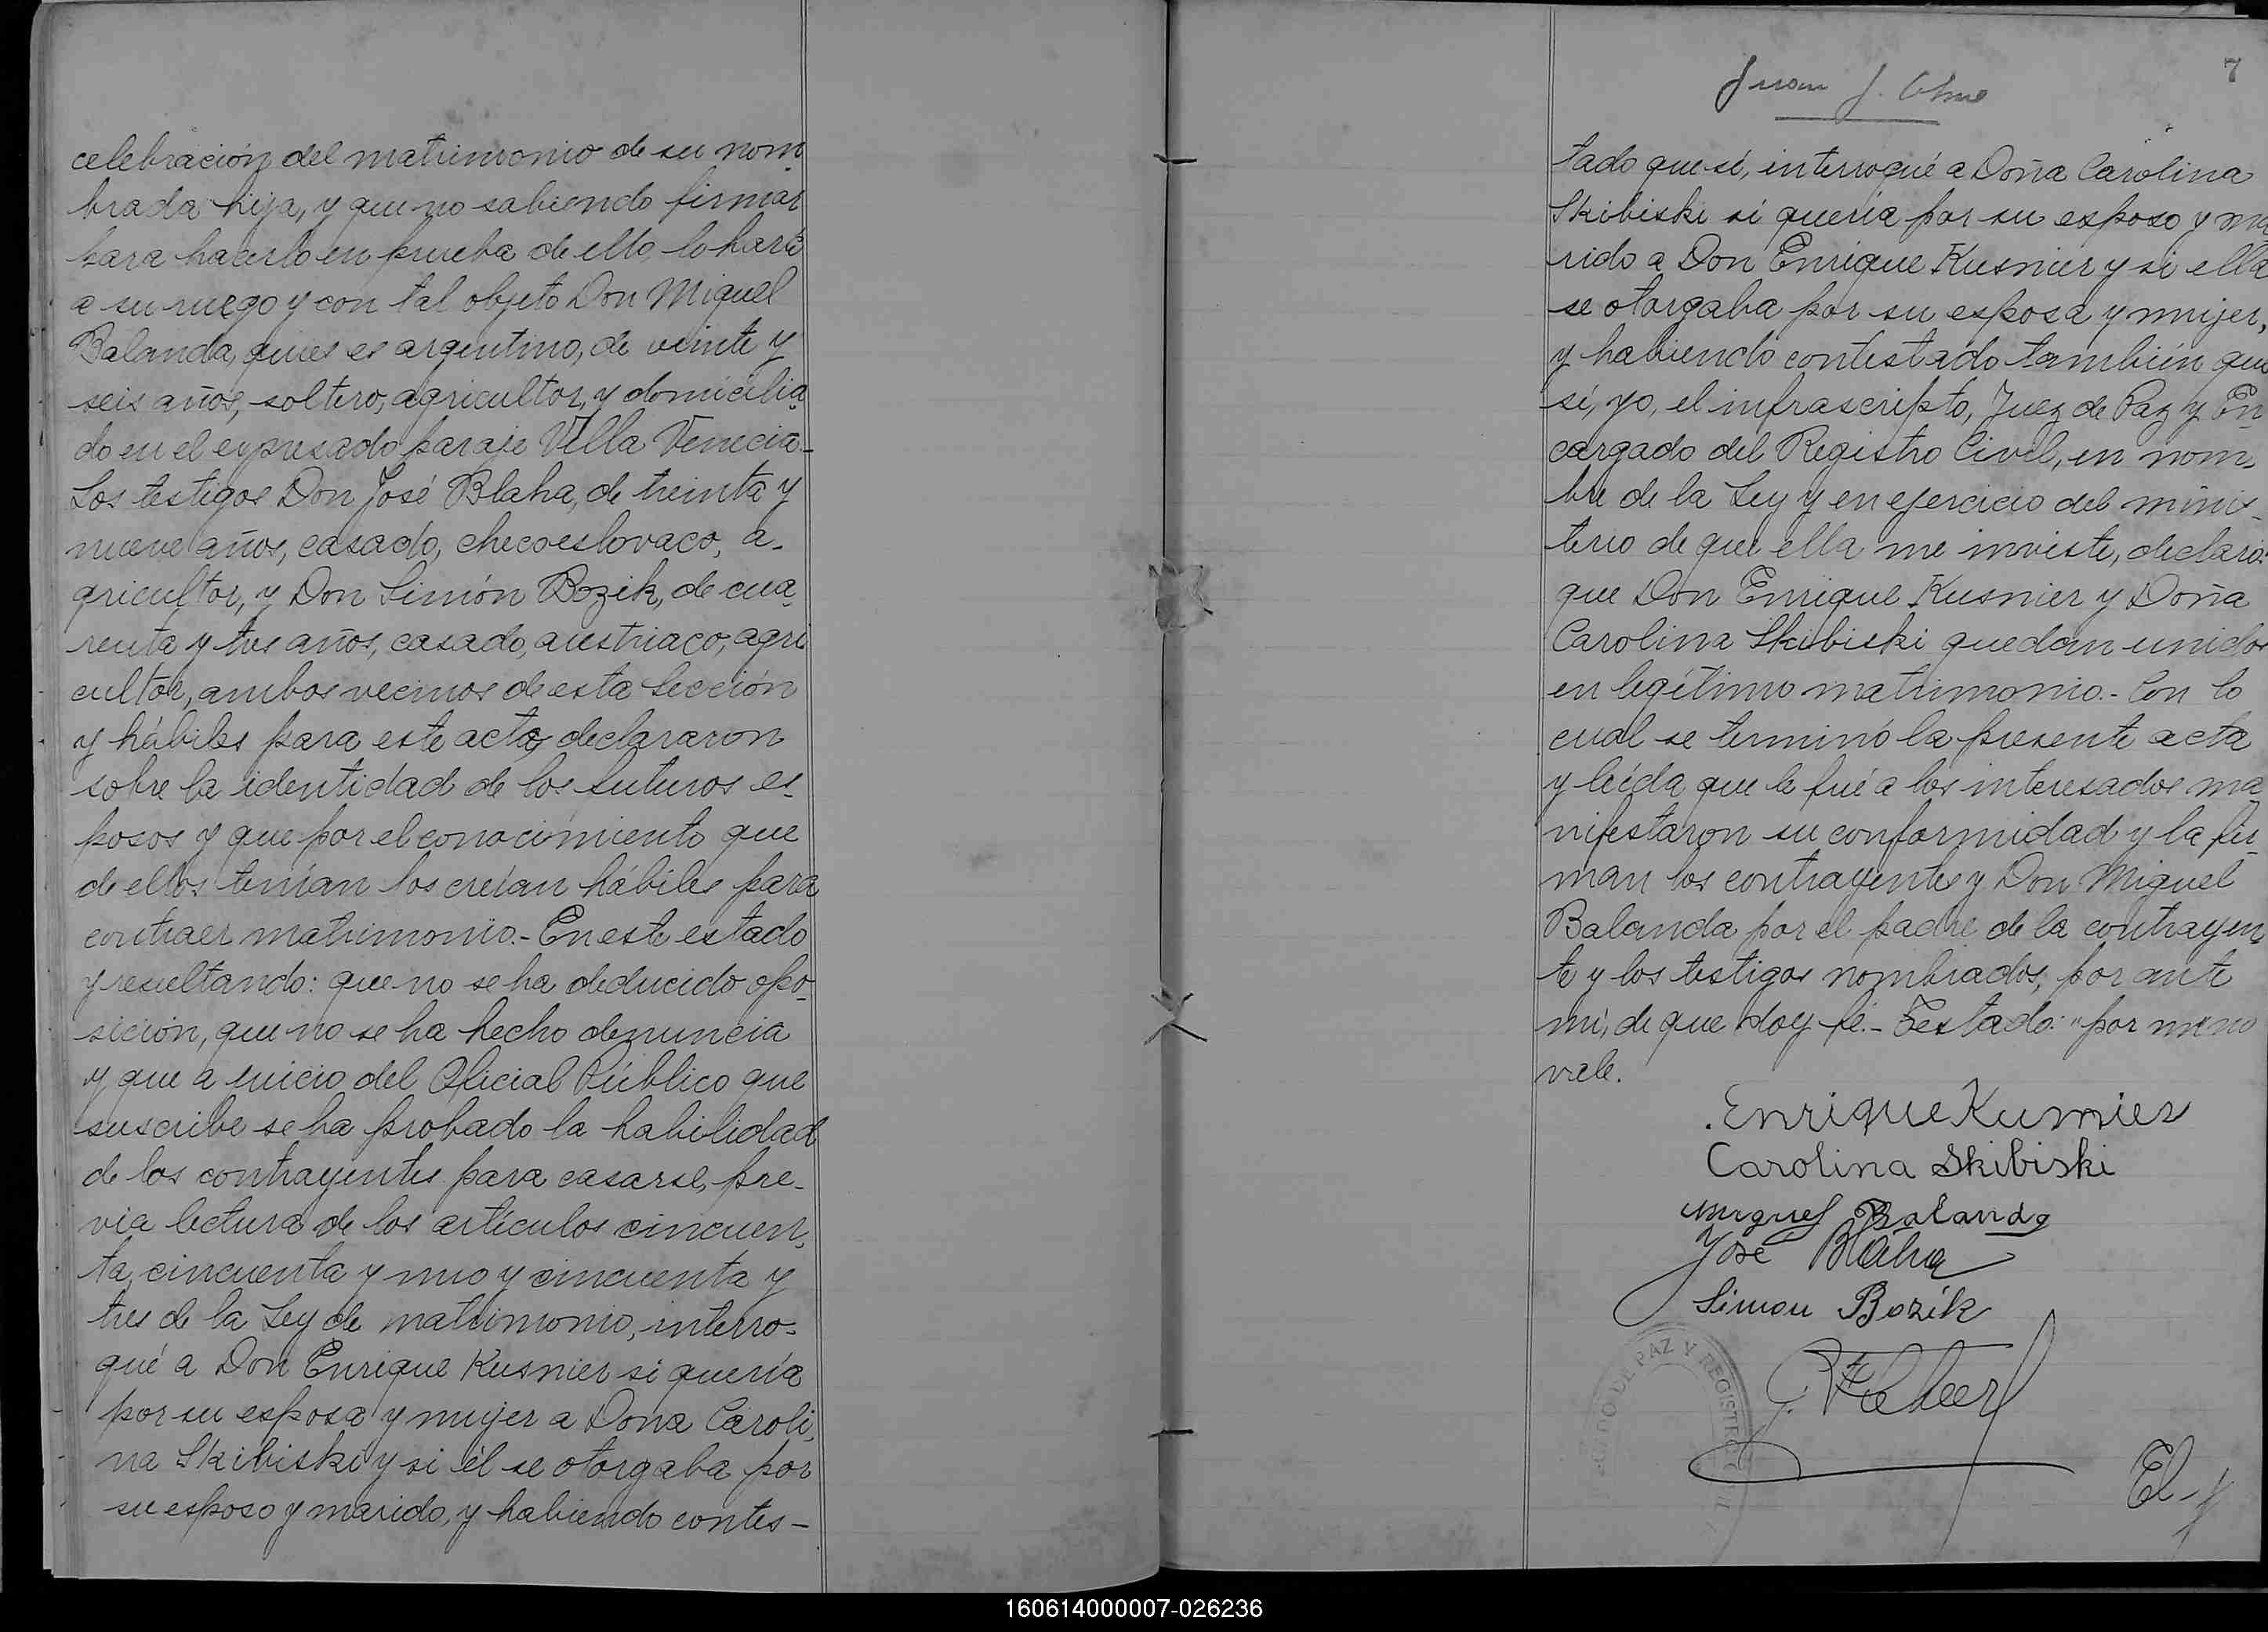 celebración del matrimonio de su nom-
brada hija, y que no sabiendo firmar
para hacerlo en prueba de ello, lo hará
a su ruego y con tal objeto Don Miguel
Balanda, quien es argentino, de veinte y
seis años, soltero, agricultor, y domicilia-
do en el expresado paraje Villa Venecia.-
Los testigos Don José Blaha, de treinta y
nueve años, casado, checoeslovaco, a-
gricultor, y Don Simón Bozik, de cua-
renta y tres años, casado, austriaco, agri
cultor, ambos vecinos de esta Sección
y hábiles para este acto, declararon
sobre la identidad de los futuros es-
posos y que por el conocimiento que
de ellos tenían los creían hábiles para
contraer matrimonio.- En este estado
y resultando: que no se ha deducido opo-
sición, que no se ha hecho denuncia
y que a juicio del Oficial Público que
suscribe se ha probado la habilidad
de los contrayentes para casarse, pre-
via lectura de los artículos cincuen-
ta, cincuenta y uno y cincuenta y
tres de la Ley de matrimonio, interro-
gué a Don Enrique Kusnier si quería
por su esposa y mujer a Doña Caroli-
na Skibiski y si él se otorgaba por
su esposo y marido, y habiendo contes-
7
Juan J.
tado que sí, interrogué a Doña Carolina
Skibiski si quería por su esposo y ma
rido a Don Enrique Kusnier y si ella
se otorgaba por su esposa y mujer,
y habiendo contestado también que
sí, yo, el infrascripto, Juez de Paz y En-
cargado del Registro Civil, en nom-
bre de la Ley y en ejercicio del minis-
terio de que ella me inviste, declaro:
que Don Enrique Kusnier y Doña
Carolina Skibiski quedan unidos
en legítimo matrimonio.- Con lo
cual se terminó la presente acta
y leída que le fué a los interesados ma
nifestaron su conformidad y la fir-
man los contrayentes y Don Miguel
Balanda por el padre de la contrayen-
te y los testigos nombrados, por ante
mí, de que doy fé.- Testado: "por no
vale.
Enrique Kusnier
Carolina Skibiski
Miguel Balanda
José Blaha
Simon Bozik
DE PAZ Y REGISTRO CIVIL
El
160614000007-026236